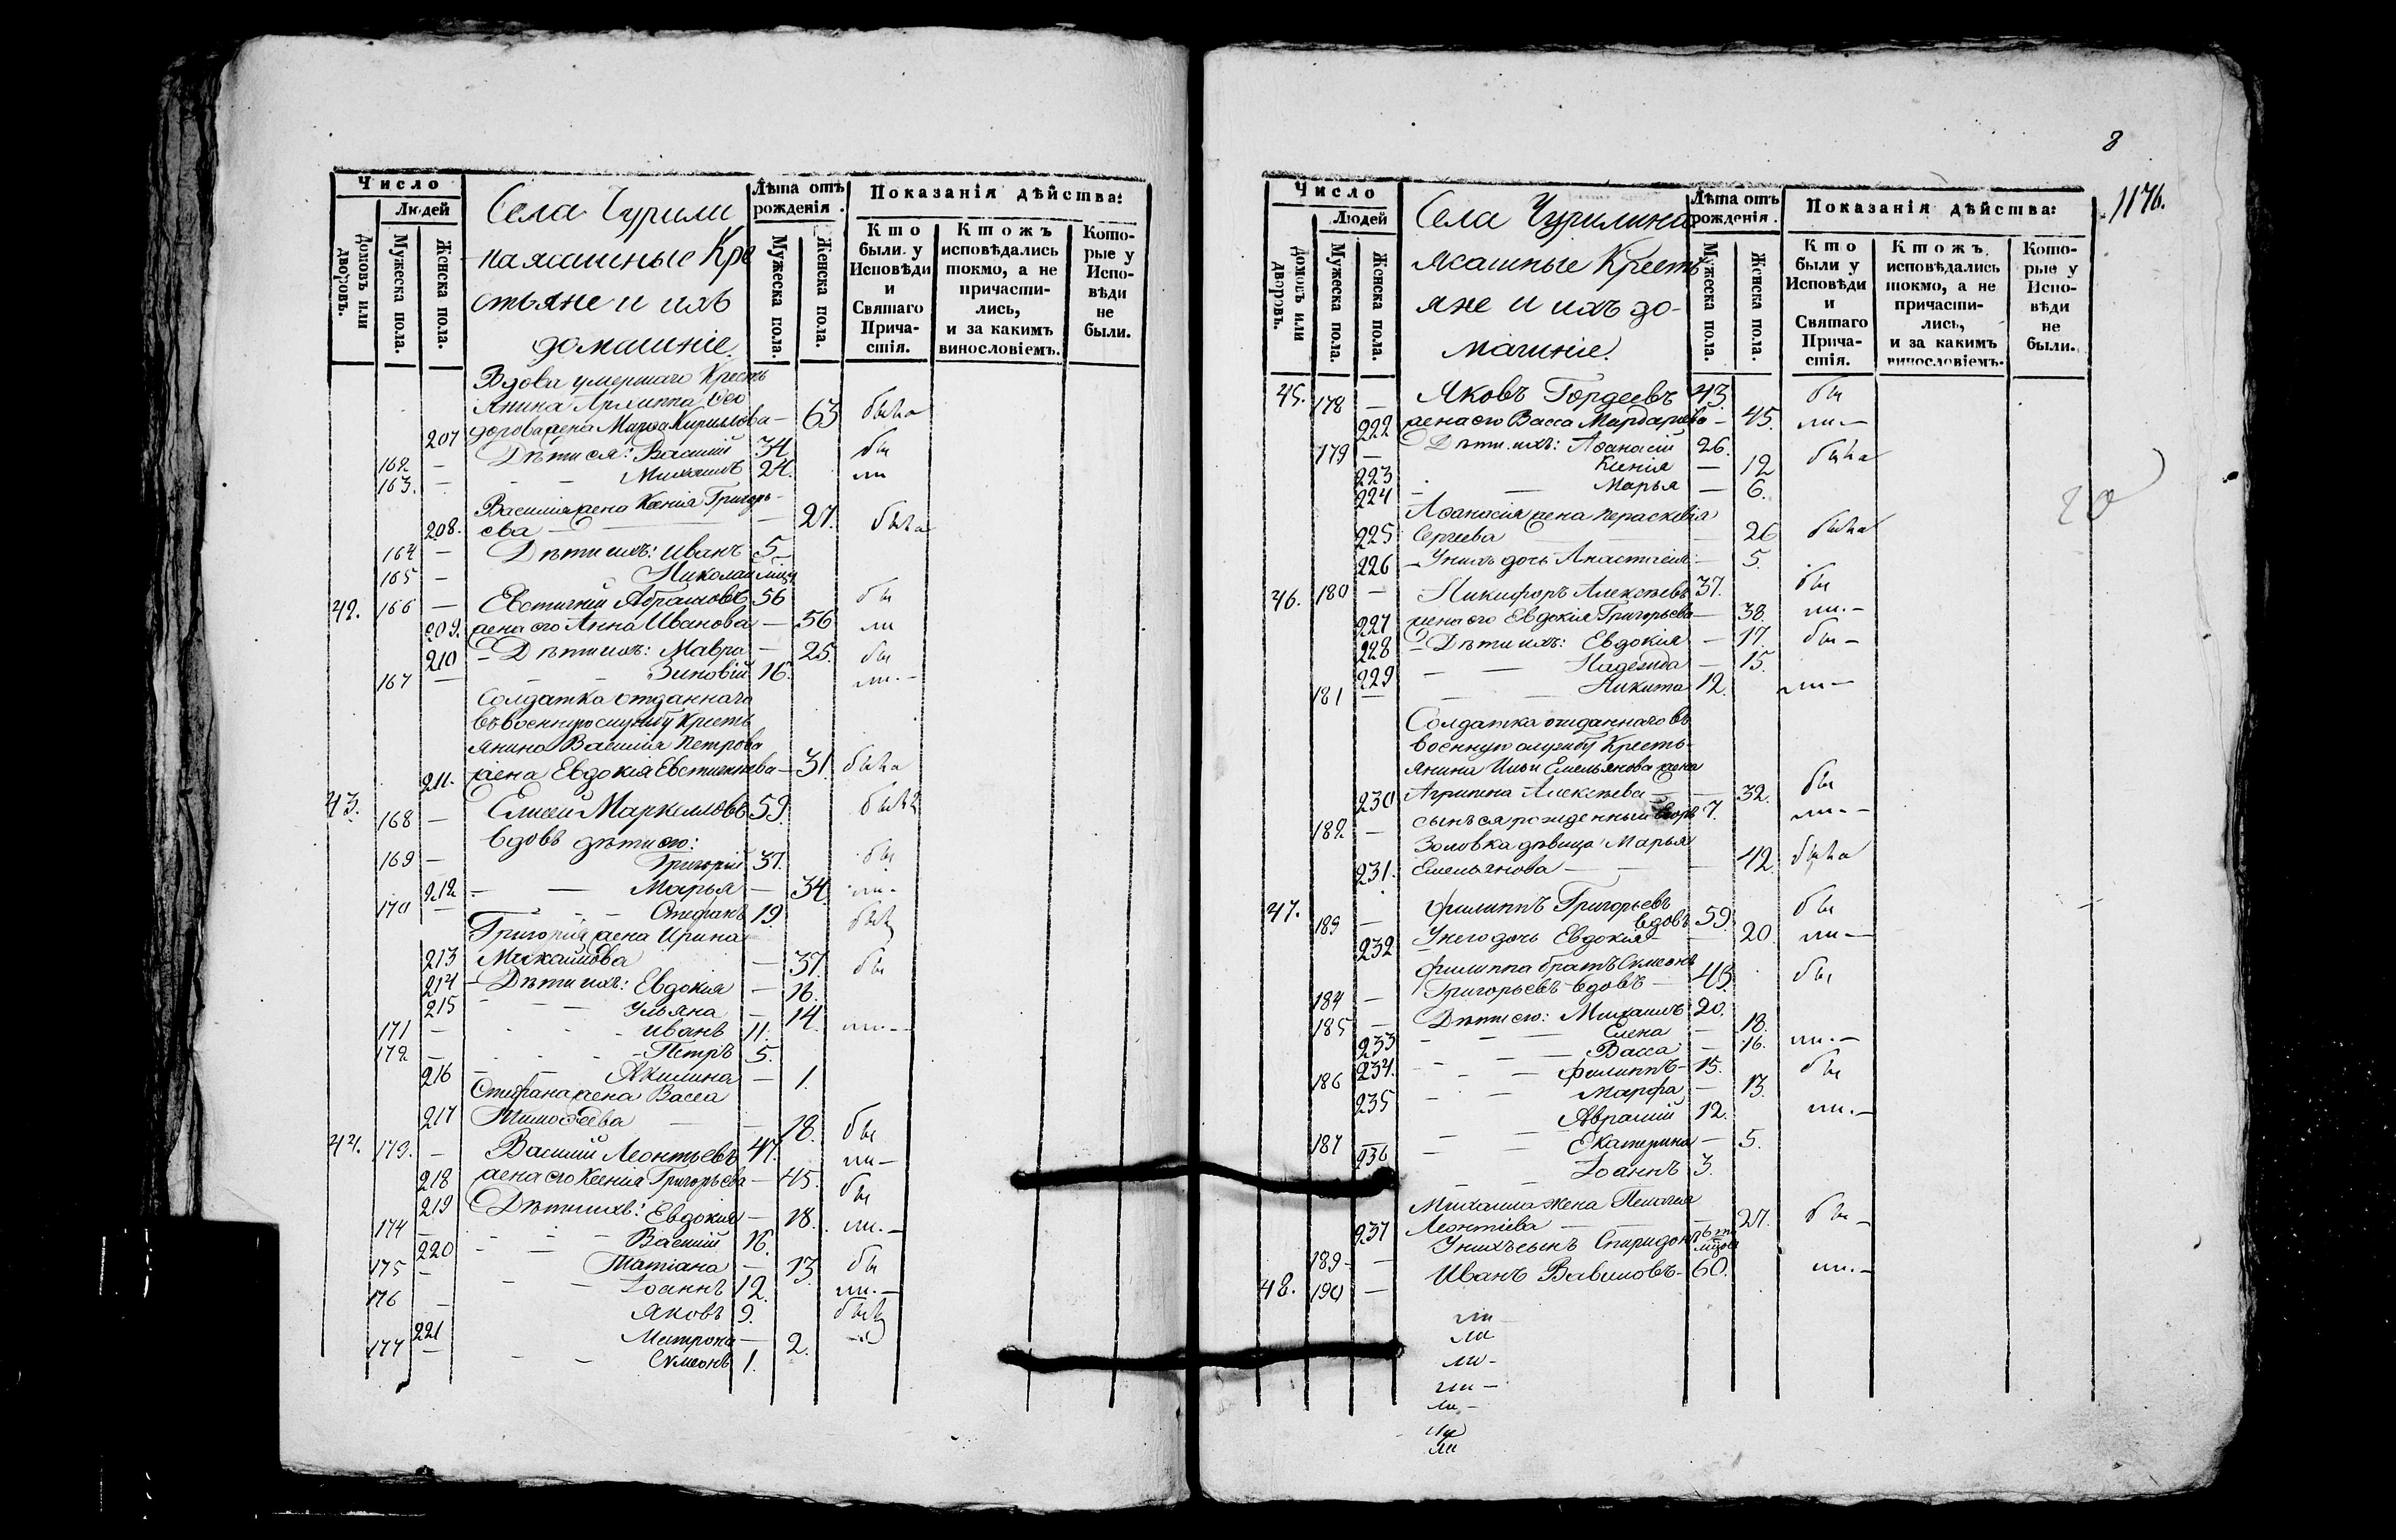 Число
Людей
Домовъ или дворовъ.
Мужеска пола.
Женска пола.
Села Чурили
на ясашные Кре
стьяне и ихъ
домашніе.
Лѣта отъ рожденія.
Мужеска пола.
Женска пола.
Показанія дѣйства:
Кто были у Исповѣди и Святаго Причастія.
Ктожъ исповѣдались токмо, а не причастились, и за какимъ винословіемъ.
Которые у Исповѣди не были.
Вдова умершаго Кресть
янина Ѳео
дорова жена Марѳа Кириллова
207 63 была
162 – Дѣти ея: Василий 34 бы
163. – Михаилъ 24. ли
Василия жена Ксения Григорь-
208. ева – 27. была
164 – Дѣти ихъ: Иванъ 5
165 – Николай
42. 166 – Евстигній Абрамовъ 56 бы
209. жена его Анна Иванова – 56 ли
210 – Дѣти ихъ: Мавра – 25. бы
167 – Зиновій 16. ли. –
Солдатка отданнаго
въ военную службу Кресть
янина Василия Петрова
211. жена Евдокія Евстигнѣева – 31. была
43. 168 – Елисей Маркелловъ 59.
вдовъ дѣти его:
169 – Григорій 37. бы
212 – Марья – 34 ли-
170 – Стефанъ 19.
Григория жена Ирина
213 Михайлова – 37. бы
214 – Дѣти ихъ: Евдокия – 16.
215 – Ульяна – 14
171 – Иванъ 11. ли. –
172 – Петръ 5.
216 – Акилина – 1.
Стефана жена Васса
217 Тимоѳеева – 18. бы
44. 173. – Василий Леонтьевъ 47. ли –
218 жена его Ксения Григорьева – 45. бы
219 Дѣти ихъ: Евдокия – 18. ли. –
174 – Василий 16.
220 – Татіана – 13. бы
175 – Іоаннъ 12. ли. –
176 – Яковъ 9.
221 Матрона – 2.
177 – Симеонъ 1.
8
1176.
Число
Людей
Домовъ или дворовъ.
Мужеска пола.
Женска пола.
Села Чурилина
ясашные Кресть
яне и ихъ до-
машніе.
Лѣта отъ рожденія.
Мужеска пола.
Женска пола.
Показанія дѣйства:
Кто были у Исповѣди и Святаго Причастія.
Ктожъ исповѣдались токмо, а не причастились, и за какимъ винословіемъ.
Которые у Исповѣди не были.
45. 178 – Яковъ Гордеевъ 43. бы
222 жена его Васса Мардариева – 45. ли. –
179 – Дѣти ихъ: Аѳанасій 26.
223 Ксенія – 12 была
224 – Марья – 6.
Аѳанасия жена Параскевія
225 Сергеева – 26 была
226 – У нихъ дочь Анастасія – 5.
46. 180 – Никифоръ Алексѣевъ 37. бы
227 жена его Евдокія Григорьева – 38. ли. –
228 – Дѣти ихъ: Евдокия – 17. бы –
229 – Надежда – 15.
181 – Никита 12. ли –
Солдатка отданнаго въ
военную службу Кресть-
янина Ильи Емельянова жена
230 Агрипена Алексѣева – 32. бы
182 – сынъ ея рожденный Егоръ 7. ли. –
Золовка дѣвица Марья
231. Емельянова – 42. была
47. Филиппъ Григорьевъ бы
183 – вдовъ 59.
232 У него дочь Евдокия – 20 ли –
Филиппа братъ Симеонъ
184 – Григорьевъ вдовъ – 43. бы
185 – Дѣти его: Михаилъ 20.
233 – Елена – 18.
234. – Васса – 16. ли. –
186 – Филиппъ – 15. бы
235 – Марфа – 13.
Аврамій 12. ли. –
187 236 – Екатерина – 5.
Іоаннъ 3.
Михаила жена Пелагея
237 Леонтіева – 27. бы –
189 – У нихъ сынъ Спиридонъ 6
48. 190 – Иванъ Вавиловъ – 60. ли. –
ли
ли
ли –
ли –
ли –
ли